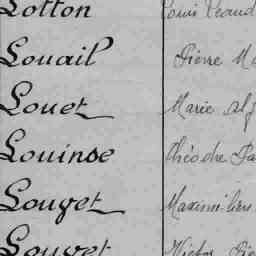 Lotton Louis
Louail Pierre
Louet Marie
Louinse Théodre
Louyet Maximilien
Louvet Victor